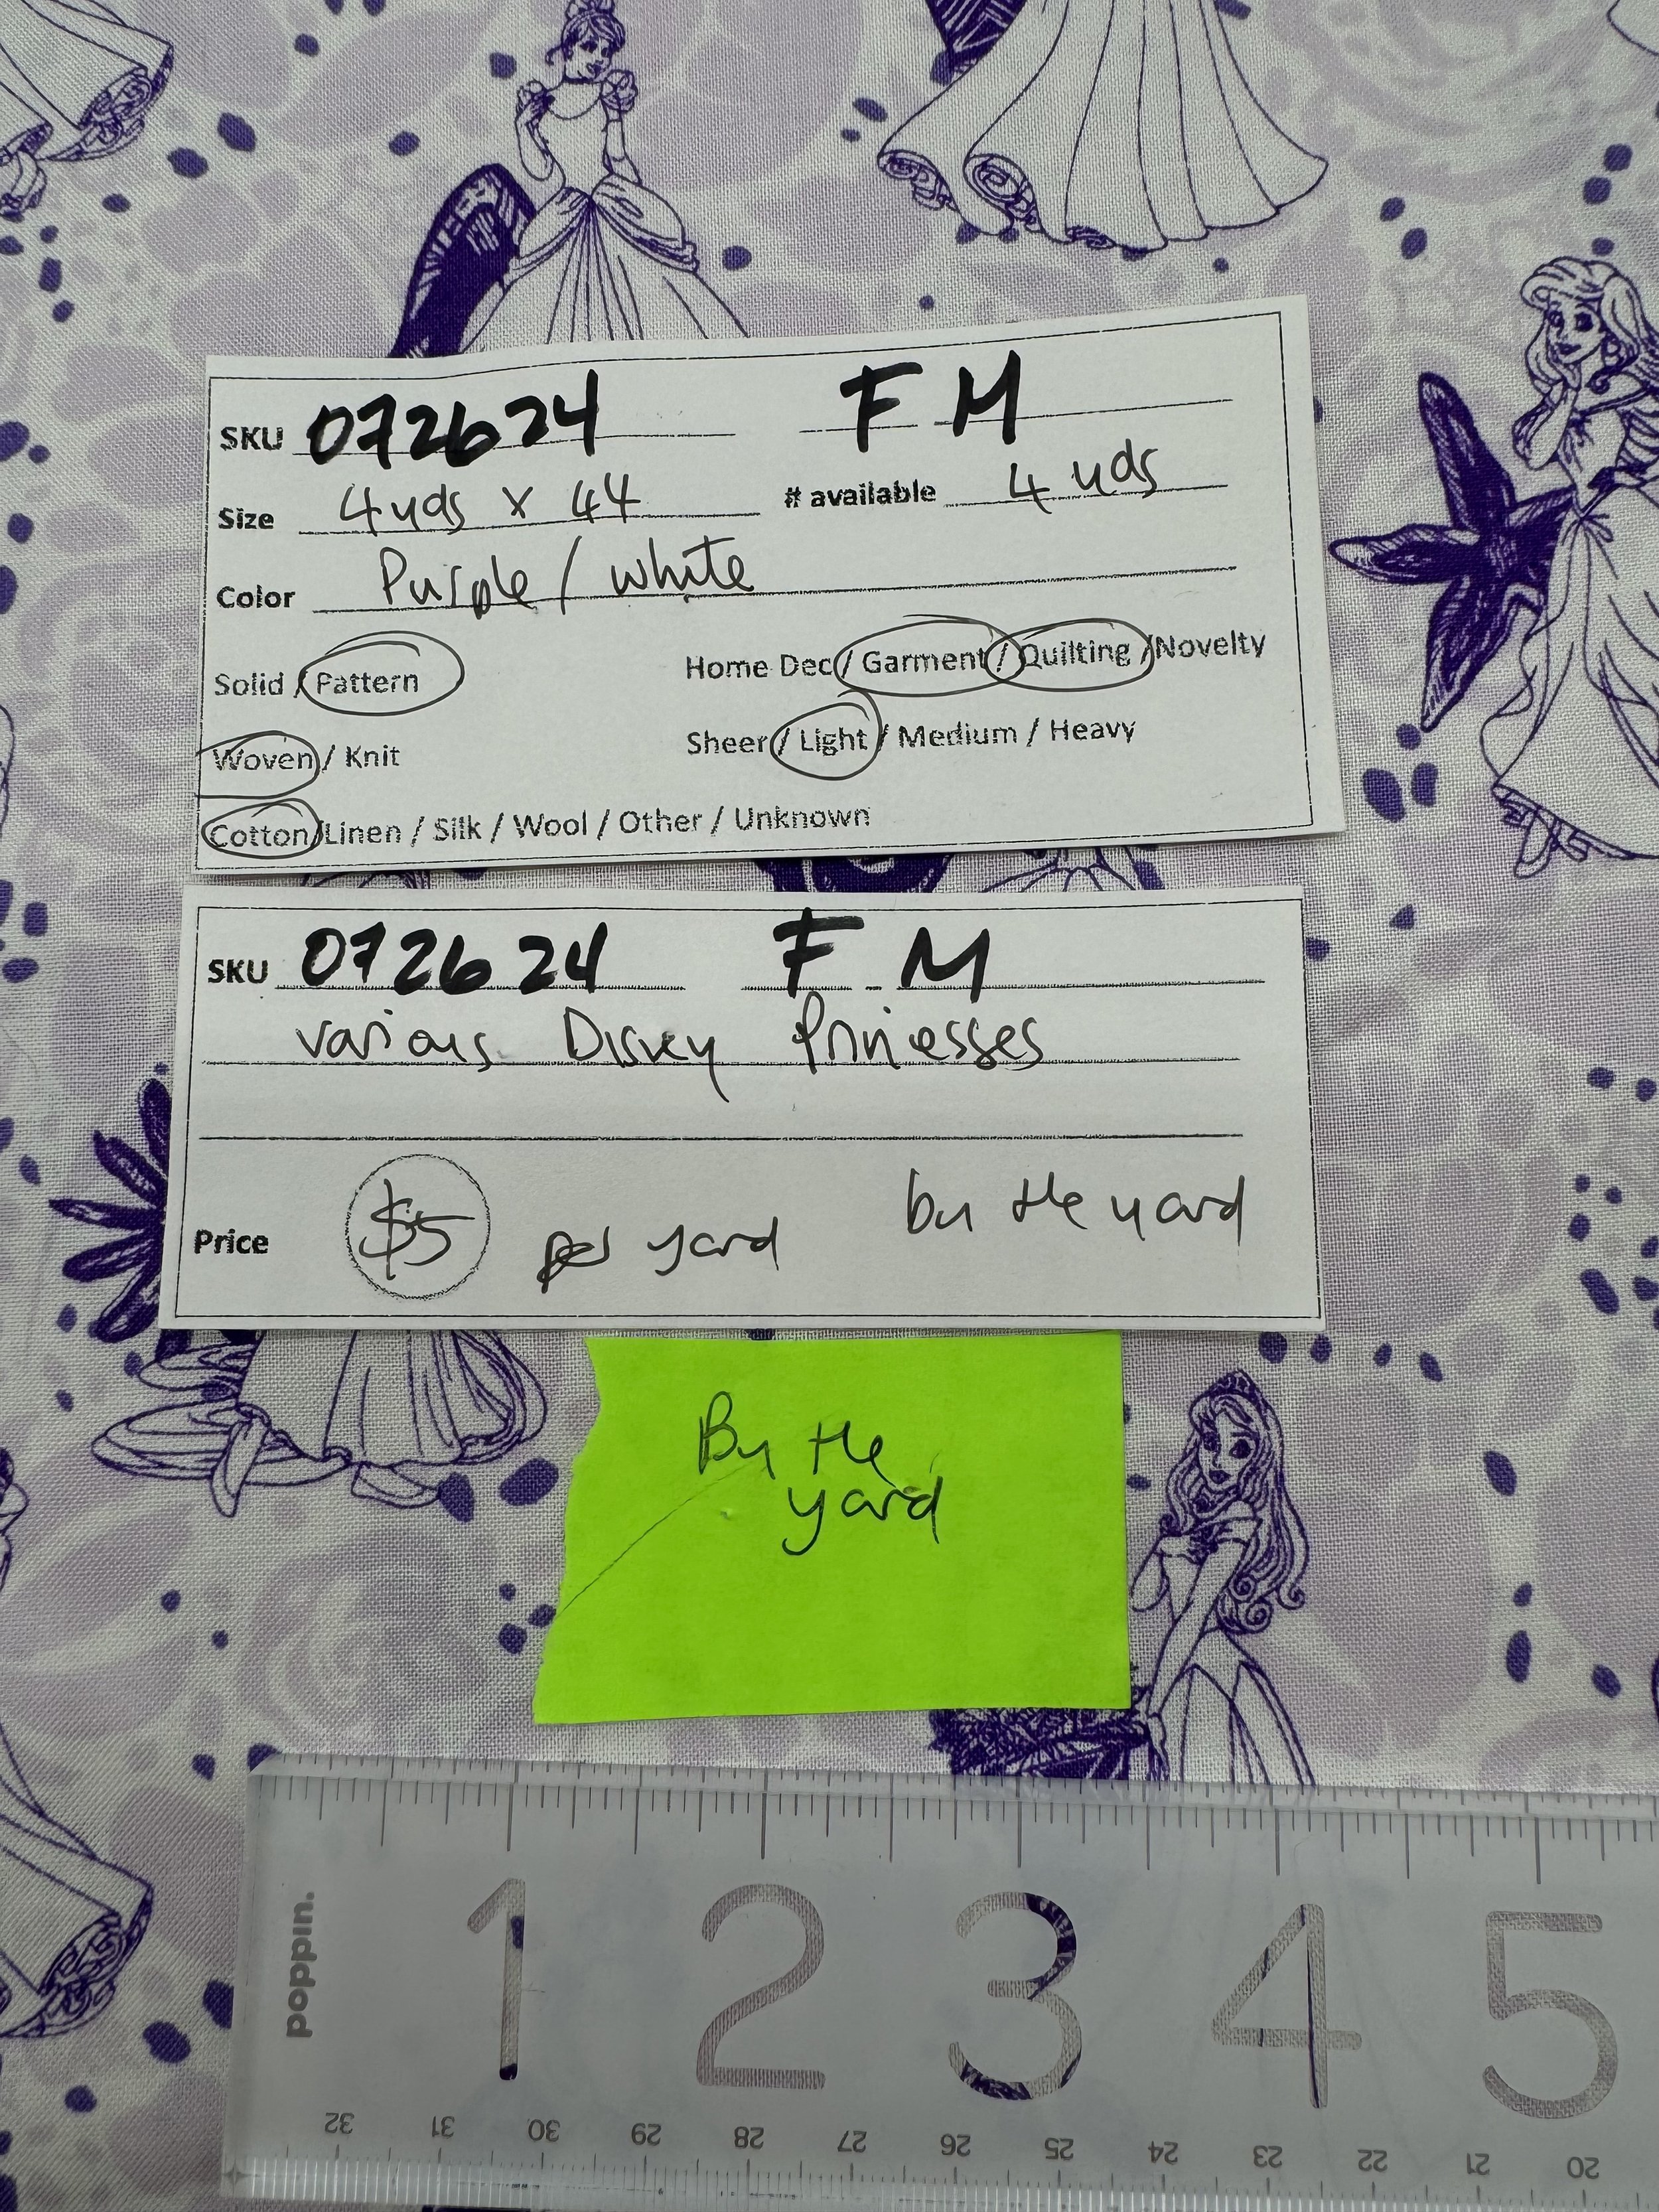 SKU 072624 F M
Size 4 yds x 44 # available 4 yds
Color Purple / white
Solid / Pattern Home Dec / Garment / Quilting / Novelty
Woven / Knit Sheer / Light / Medium / Heavy
Cotton / Linen / Silk / Wool / Other / Unknown
SKU 072624 F M
various Disney Princesses
Price $5 per yard by the yard
By the
yard
poppin.
1 2 3 4 5
32 31 30 29 28 27 26 25 24 23 22 21 20